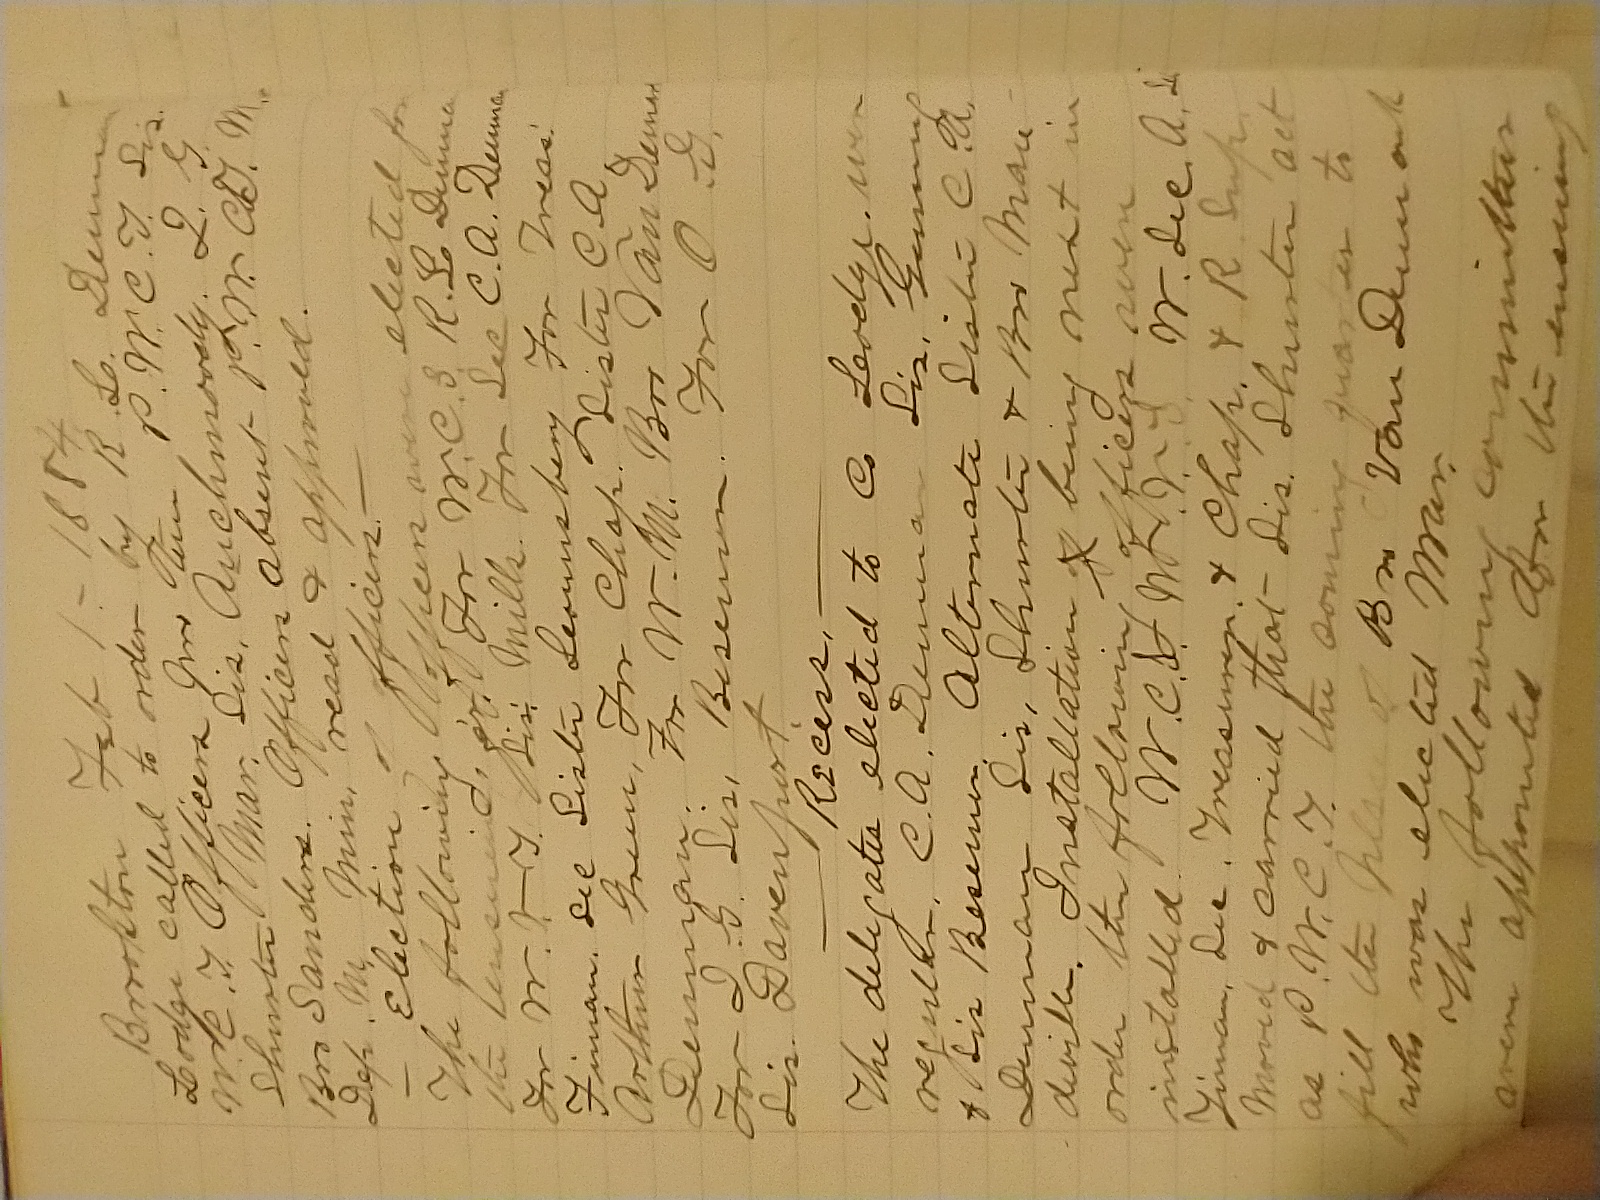 Brookton Feb 1 - 1884
Lodge called to order by R. L. Denman
W. C. T. Officers pro tem P. W. C. T. Sis.
Shurter Mar. Sis. Auchmoody. I. G.
Bro Sanders. Officers absent P. W. C. T. M.
Dep. M. Min. read & approved.
— Election of officers. —
The following officers were elected for
the ensuing qr. For W. C. T. R. L. Denman
For W. V. T. Sis. Mills. For Sec C. A. Denman
Finan. Sec Sister Lounsbery For Treas.
Arthur Green, For Chap. Sister C. A.
Denman. For W. M. Bro Van Demark
For I. G. Sis. Besemer. For O. G.
Sis. Davenport.
— Recess. —
The delegates elected to Co Lodge. were
regular. C. A. Denman Sis. Genung
& Sis Besemer. Alternate Sister C. A.
Denman Sis. Shurter & Bro Man
deville. Installation being next in
order the following officers were
installed. W. C. T. W. V. T. W. Sec. A. Sec
Finan. Sec. Treasurer. & Chap. & R. Sup.
Moved & carried that Sis. Shurter act
as P. W. C. T. the coming quarter to
fill the place of Bro Van Demark
who was elected Mar.
The following committees
were appointed for the ensuing